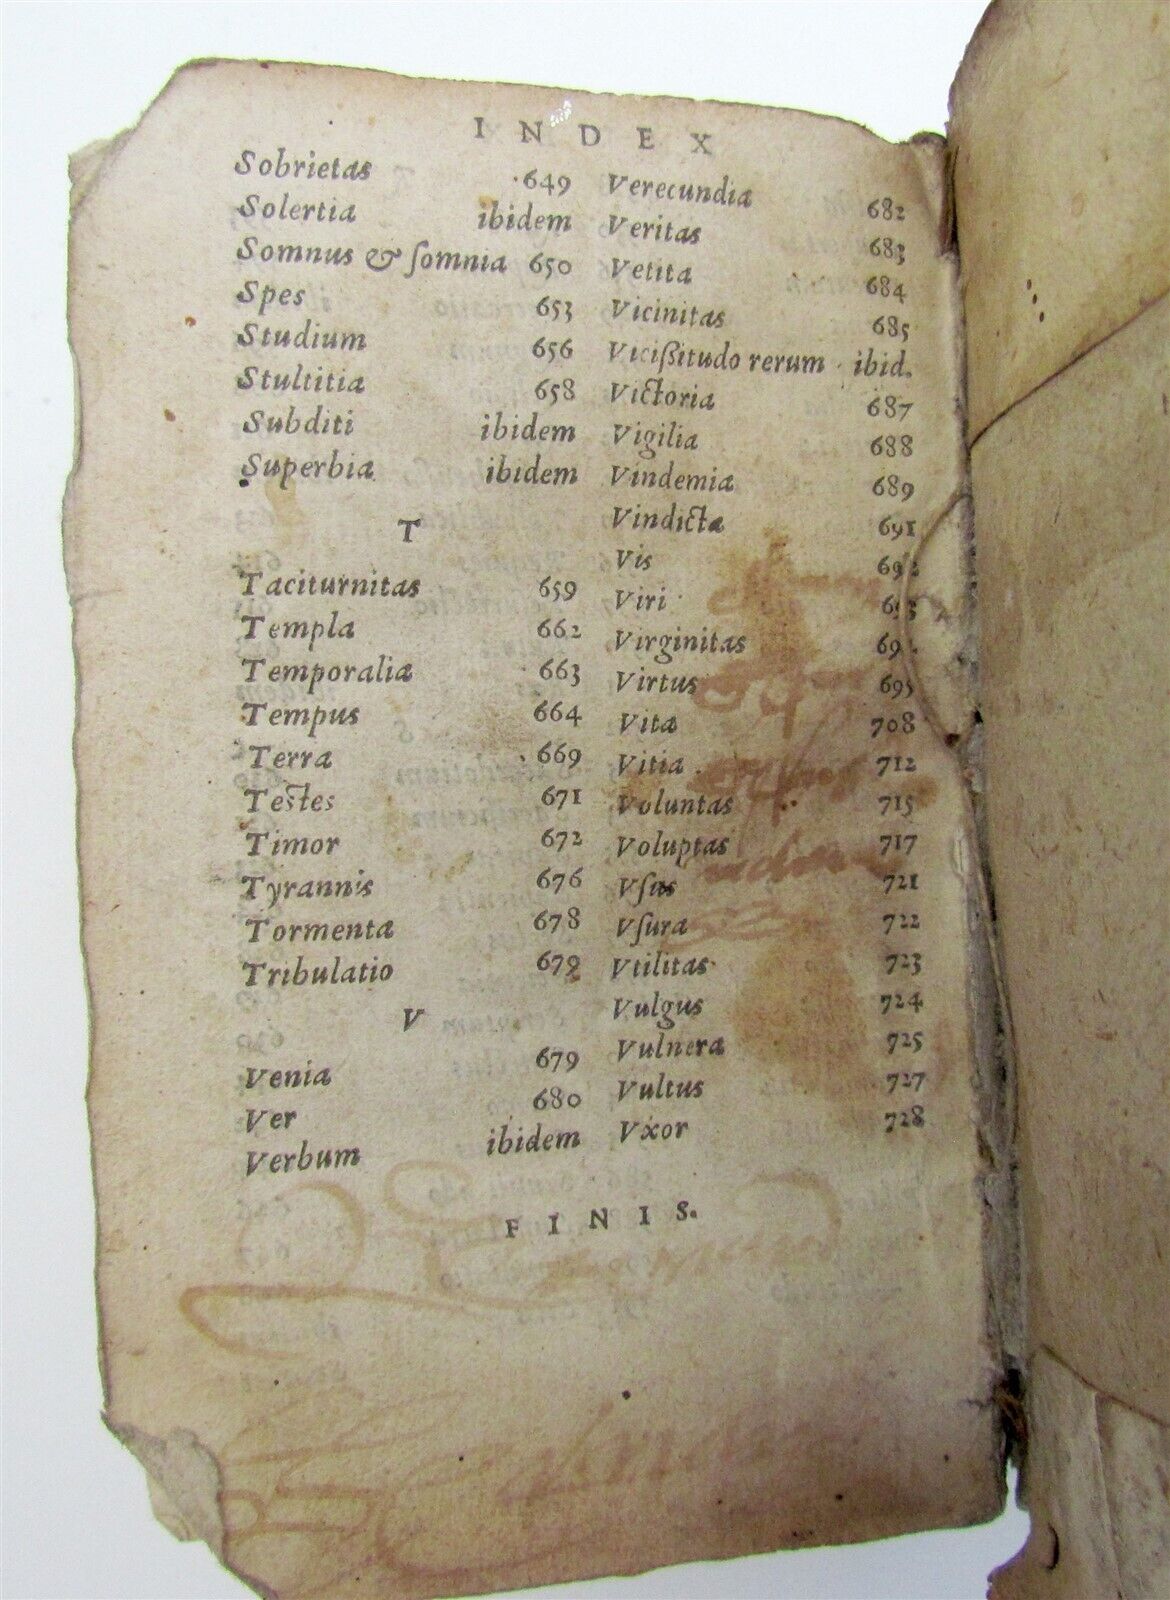 INDEX
Sobrietas 649
Solertia ibidem
Somnus & ſomnia 650
Spes 653
Studium 656
Stultitia 658
Subditi ibidem
Superbia ibidem
T
Taciturnitas 659
Templa 662
Temporalia 663
Tempus 664
Terra 669
Testes 671
Timor 672
Tyrannis 676
Tormenta 678
Tribulatio 679
V
Venia 679
Ver 680
Verbum ibidem
Verecundia 682
Veritas 683
Vetita 684
Vicinitas 685
Vicißitudo rerum ibid.
Victoria 687
Vigilia 688
Vindemia 689
Vindicta 691
Vis 692
Viri 693
Virginitas
Virtus 695
Vita 708
Vitia 712
Voluntas 715
Voluptas 717
Vſus 721
Vſura 722
Vtilitas 723
Vulgus 724
Vulnera 725
Vultus 727
Vxor 728
FINIS.